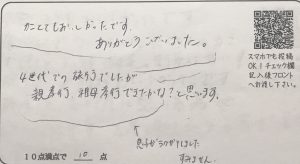 とてもおいしかったです。
ありがとうございました。
4世代での旅行でしたが
親孝行、祖母孝行できたかな?と思います。
息子がラクガキしました
すみません
10点満点で 10 点
スマホでも投稿
OK!チェック欄
記入後フロント
へお渡し下さい。